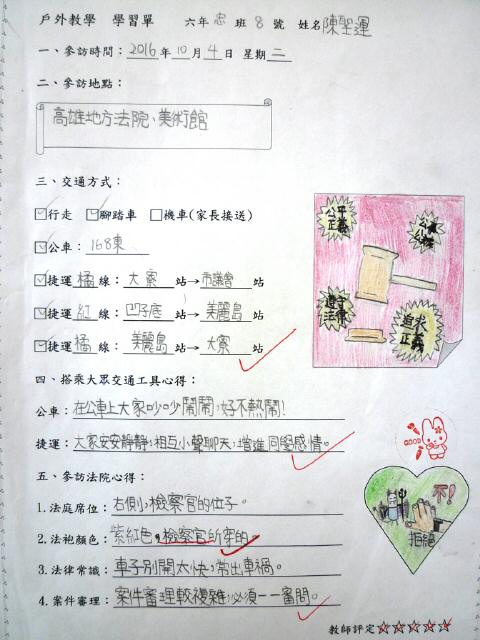 戶外教學 學習單 六年忠班8號 姓名陳聖運
一、參訪時間：2016年10月4日 星期二
二、參訪地點：
高雄地方法院、美術館
三、交通方式：
行走 腳踏車 機車(家長接送)
公車：168東
捷運橘線：大寮站→市議會站
捷運紅線：凹子底站→美麗島站
捷運橘線：美麗島站→大寮站
公平
正義
遵守
法律
追求
正義
四、搭乘大眾交通工具心得：
公車：在公車上大家吵吵鬧鬧,好不熱鬧!
捷運：大家安安靜靜,相互小聲聊天,增進同學感情。
五、參訪法院心得：
1.法庭席位：右側,檢察官的位子。
2.法袍顏色：紫紅色,檢察官所穿的。
3.法律常識：車子別開太快,常出車禍。
4.案件審理：案件審理較複雜,必須一一審問。
不!
拒絕
教師評定☆☆☆☆☆